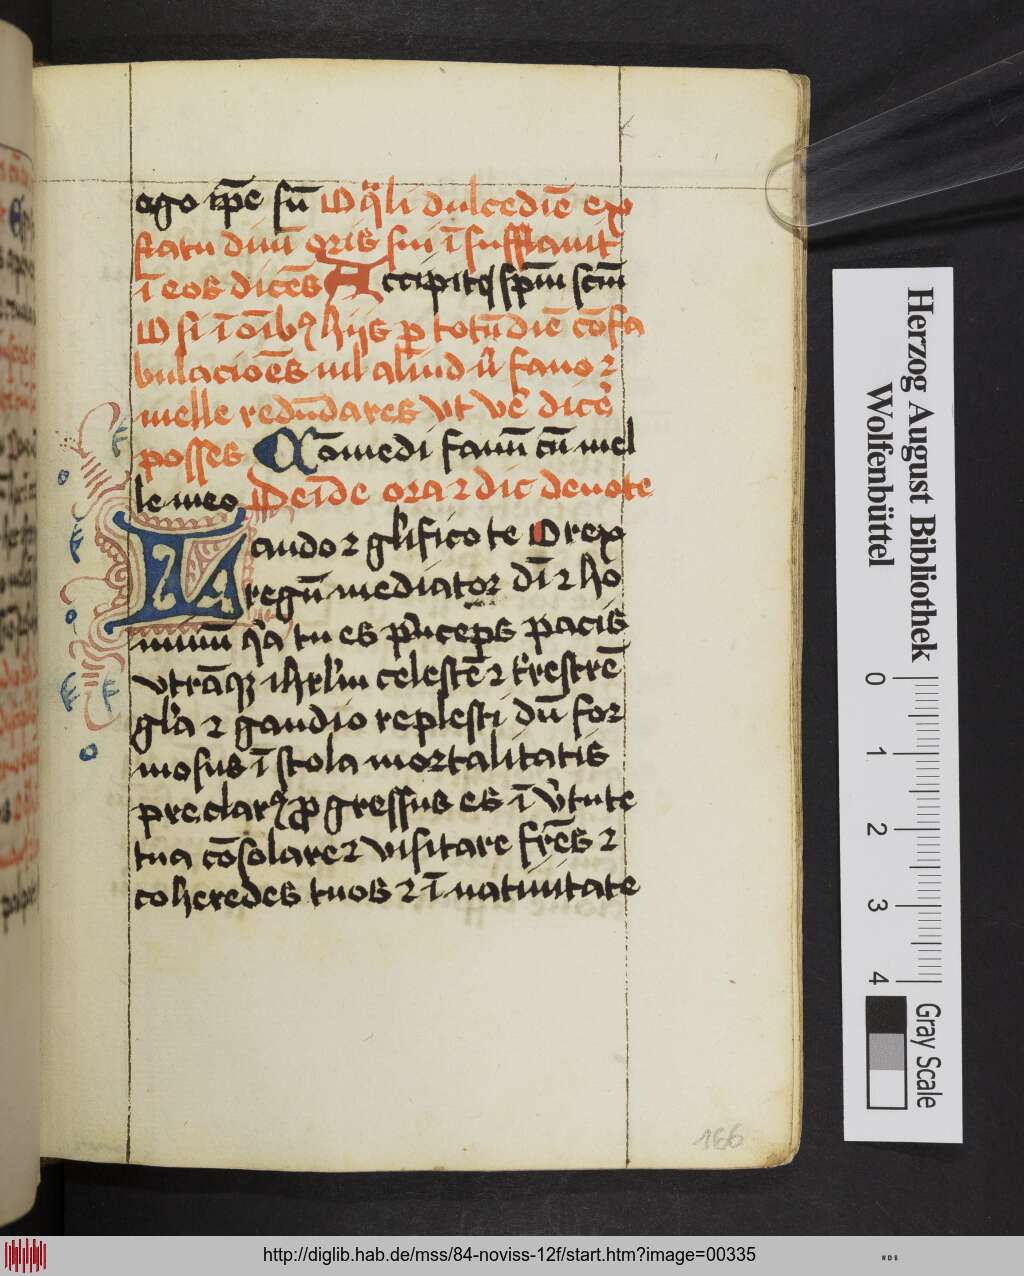 ego ip̄e sū O q̈li dulcediē ex
flatu diuī oris sui ī sufflauit
ī eos dicēs Accipitꝭ sp̄m sc̄m
O si ī oībꝫ hijs ꝑ totū diē cōfa
bulacioēs nil aliud nͥ fauoꝛ
melle redūdares vt vē dicē
posses Comedi fauū cū mel
le meo Deīde ora ⁊ dic deuote
Laudo ⁊ glīfico te O rex
regū mediatoꝛ dī ⁊ ho
minū qͥa tu es pͥnceps pacis
vtrāqꝫ ihrlm̄ celestē ⁊ tr̄estrē
glͥa ⁊ gaudio replesti dū foꝛ
mosus ī stola moꝛtalitatis
preclarꝰ ꝓgressus es ī vͥtute
tua cōsolare ⁊ visitare fr̄es ⁊
coheredes tuos ⁊ ī natiuitate
166
Herzog August Bibliothek
Wolfenbüttel
0 1 2 3 4
Gray Scale
http://diglib.hab.de/mss/84-noviss-12f/start.htm?image=00335